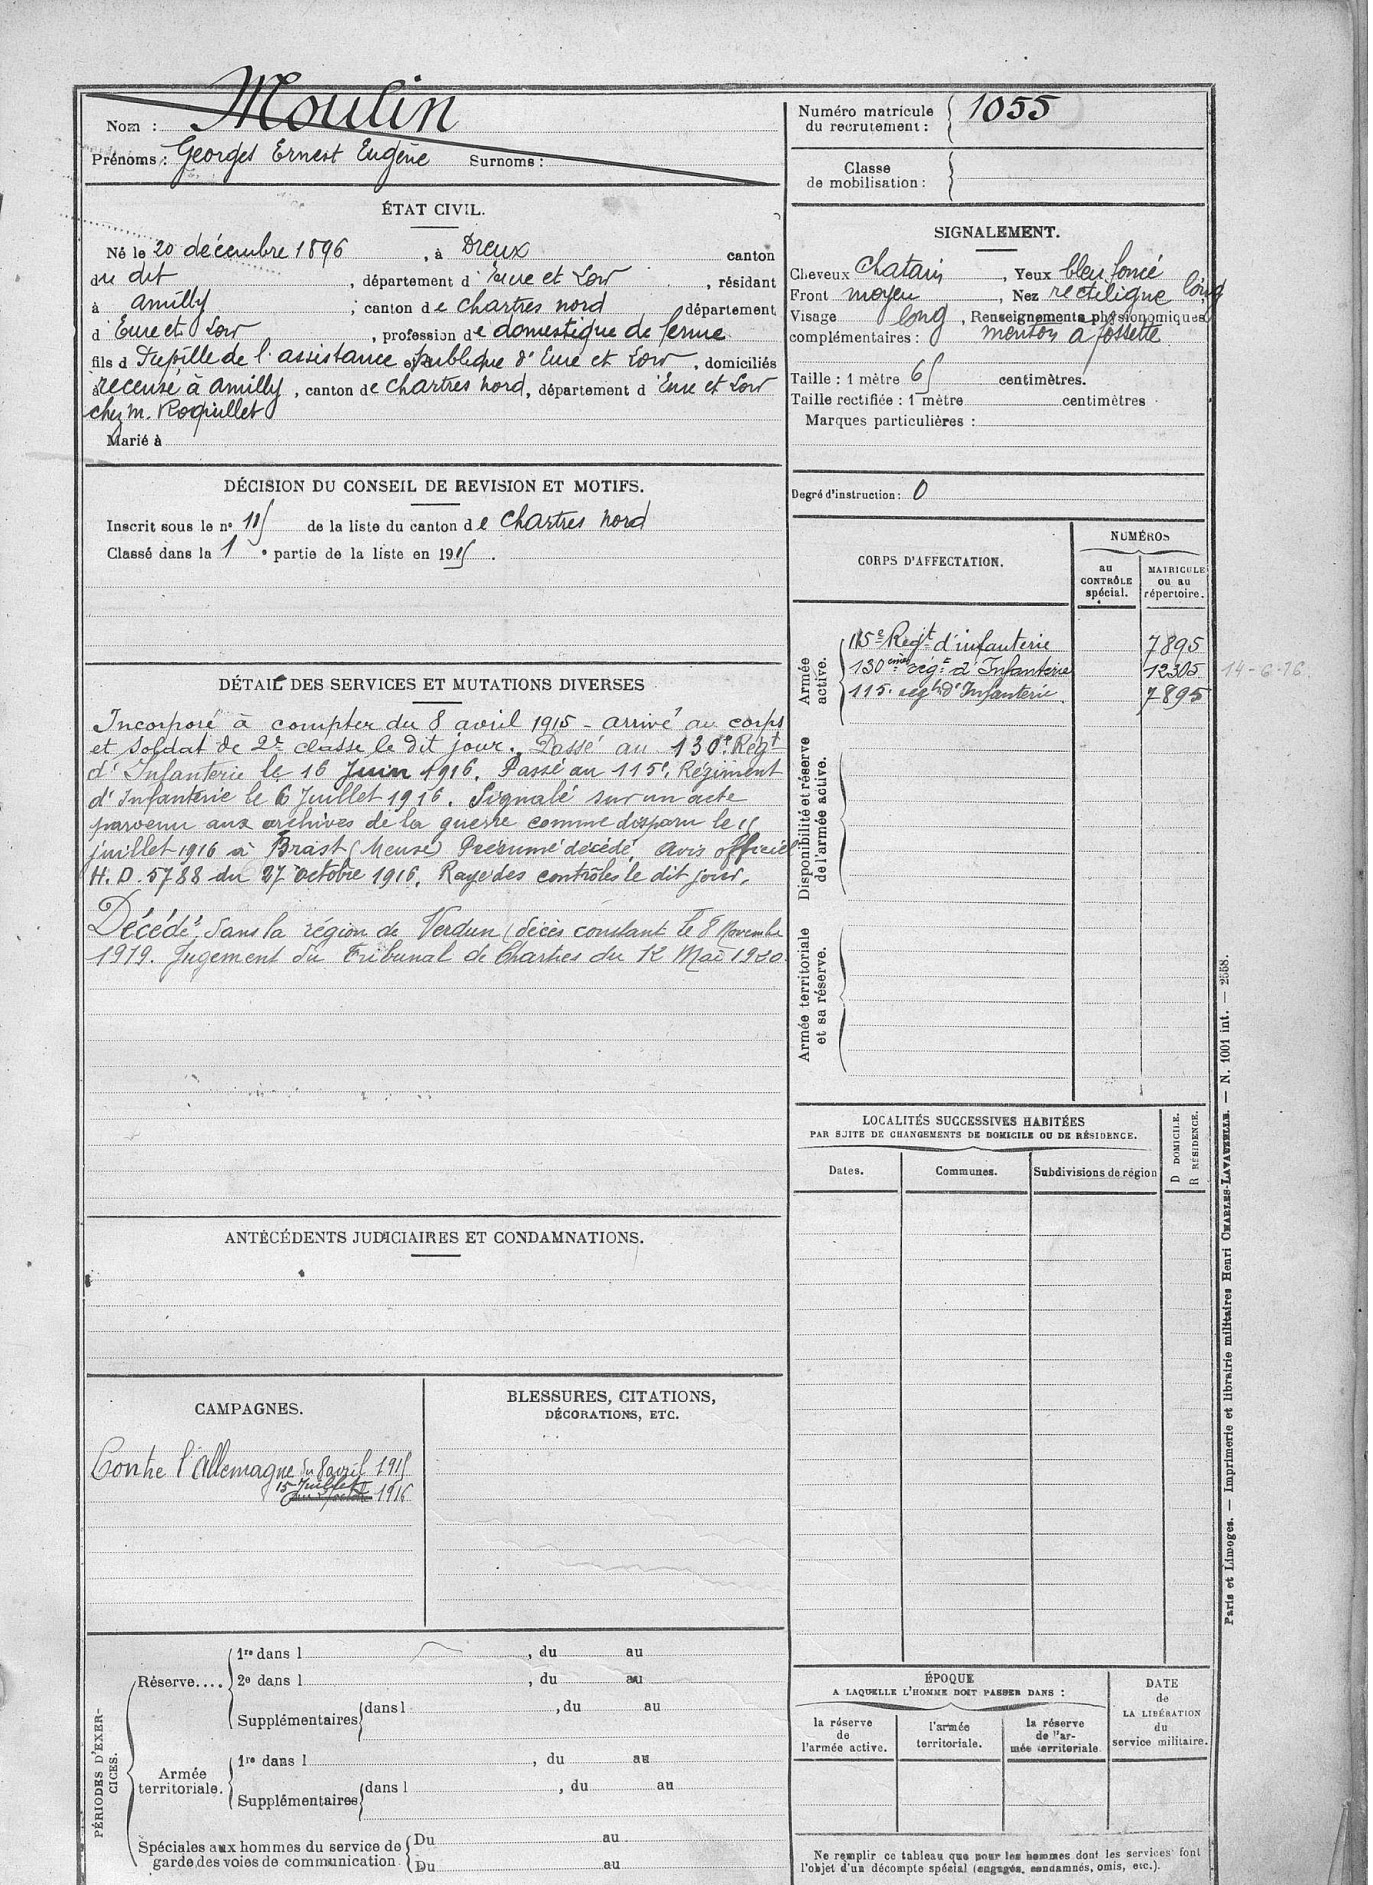 Nom : Moulin
Prénoms : Georges Ernest Eugène Surnoms :
Numéro matricule du recrutement : 1055
Classe de mobilisation :
ÉTAT CIVIL.
Né le 20 décembre 1896, à Dreux canton
du dit, département d'Eure et Loir, résidant
à amilly ; canton de Chartres nord département
d'Eure et Loir, profession de domestique de ferme
fils d Pupille de l'assistance et publique d'Eure et Loir, domiciliés
à recensé à amilly, canton de Chartres nord, département d'Eure et Loir
chez M. Roquillet
Marié à
SIGNALEMENT.
Cheveux chatain, Yeux bleu foncé
Front moyen, Nez rectiligne long
Visage long, Renseignements physionomiques
complémentaires : menton à fossette
Taille : 1 mètre 65 centimètres.
Taille rectifiée : 1 mètre centimètres
Marques particulières :
Degré d'instruction : 0
DÉCISION DU CONSEIL DE REVISION ET MOTIFS.
Inscrit sous le n° 115 de la liste du canton de Chartres nord
Classé dans la 1e partie de la liste en 1915.
DÉTAIL DES SERVICES ET MUTATIONS DIVERSES
Incorporé à compter du 8 avril 1915 - arrivé au corps
et Soldat de 2e classe le dit jour. Passé au 130e Régt
d'Infanterie le 16 Juin 1916. Passé au 115e Régiment
d'Infanterie le 6 Juillet 1916. Signalé sur un acte
parvenu aux archives de la guerre comme disparu le 15
juillet 1916 à Brast (Meuse) Présumé décédé avis officiel
H.D. 5788 du 27 octobre 1916. Rayé des contrôles le dit jour.
Décédé dans la région de Verdun (décès constant le 8 Novembre
1919. Jugement du Tribunal de Chartres du 12 Mai 1920
CORPS D'AFFECTATION.
NUMÉROS
au CONTRÔLE spécial.
MATRICULE ou au répertoire.
Armée active.
115e Régt d'infanterie 7895
130ème régt d'Infanterie 12305 14-6-16.
115e régt d'Infanterie 7895
Disponibilité et réserve de l'armée active.
Armée territoriale et sa réserve.
LOCALITÉS SUCCESSIVES HABITÉES
PAR SUITE DE CHANGEMENTS DE DOMICILE OU DE RÉSIDENCE.
Dates. Communes. Subdivisions de région
D DOMICILE.
R RÉSIDENCE.
ANTÉCÉDENTS JUDICIAIRES ET CONDAMNATIONS.
CAMPAGNES.
Contre l'Allemagne du 8 avril 1915
15 Juillet 1916
BLESSURES, CITATIONS,
DÉCORATIONS, ETC.
PÉRIODES D'EXERCICES.
Réserve....
1re dans l , du au
2e dans l , du au
Supplémentaires dans l , du au
Armée territoriale.
1re dans l , du au
Supplémentaires dans l , du au
Spéciales aux hommes du service de
garde des voies de communication
Du au
Du au
ÉPOQUE
A LAQUELLE L'HOMME DOIT PASSER DANS :
la réserve de l'armée active.
l'armée territoriale.
la réserve de l'armée territoriale.
DATE de LA LIBÉRATION du service militaire.
Ne remplir ce tableau que pour les hommes dont les services font
l'objet d'un décompte spécial (engagés, condamnés, omis, etc.).
Paris et Limoges. — Imprimerie et librairie militaires Henri CHARLES-LAVAUZELLE. — N. 1001 int. — 2558.